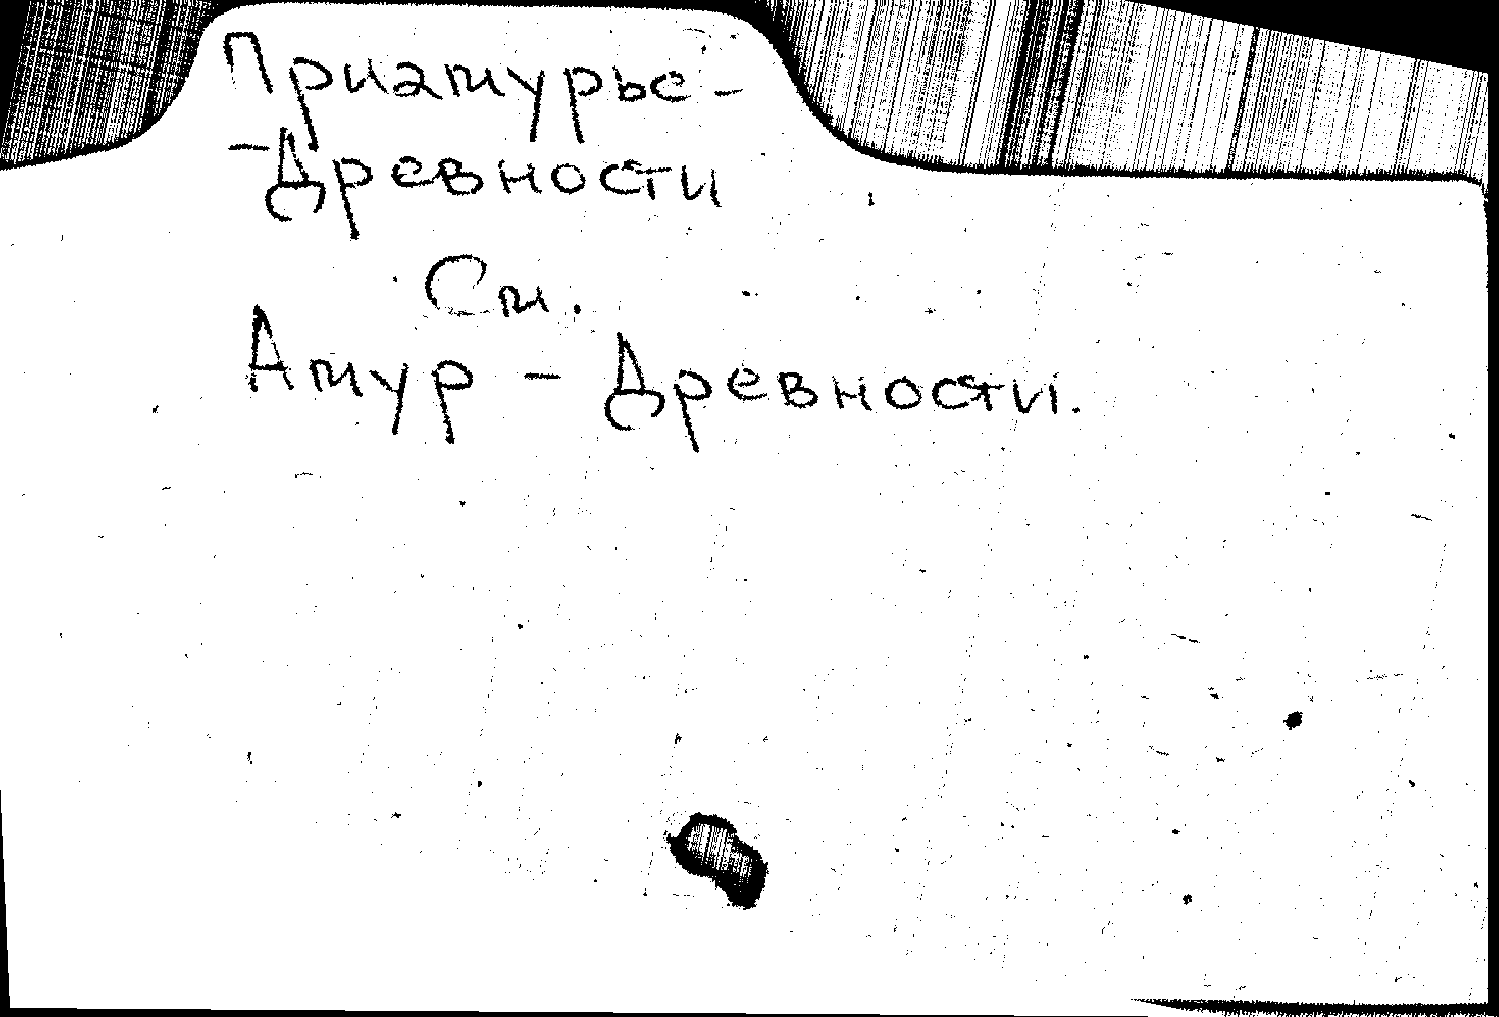 Приамурье -
- Древности
См.
Амур - Древности.